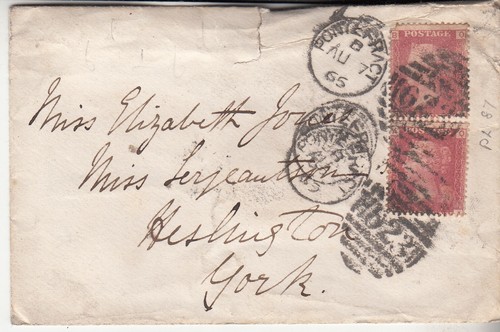 POSTAGE
PONTEFRACT
B
AU 7
65
Miss Elizabeth Jones
Miss Sergeantson
Heslington
York.
PONTEFRACT
623
PL 87